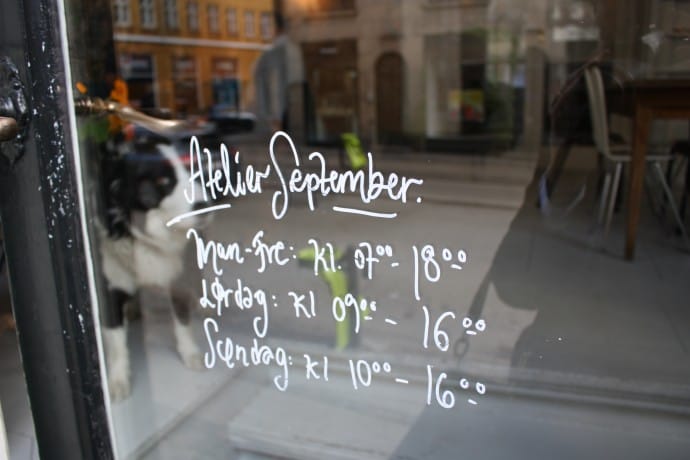 Atelier September.
Man-Fre: Kl. 07⁰⁰ - 18⁰⁰
Lørdag: Kl 09⁰⁰ - 16⁰⁰
Søndag: Kl 10⁰⁰ - 16⁰⁰